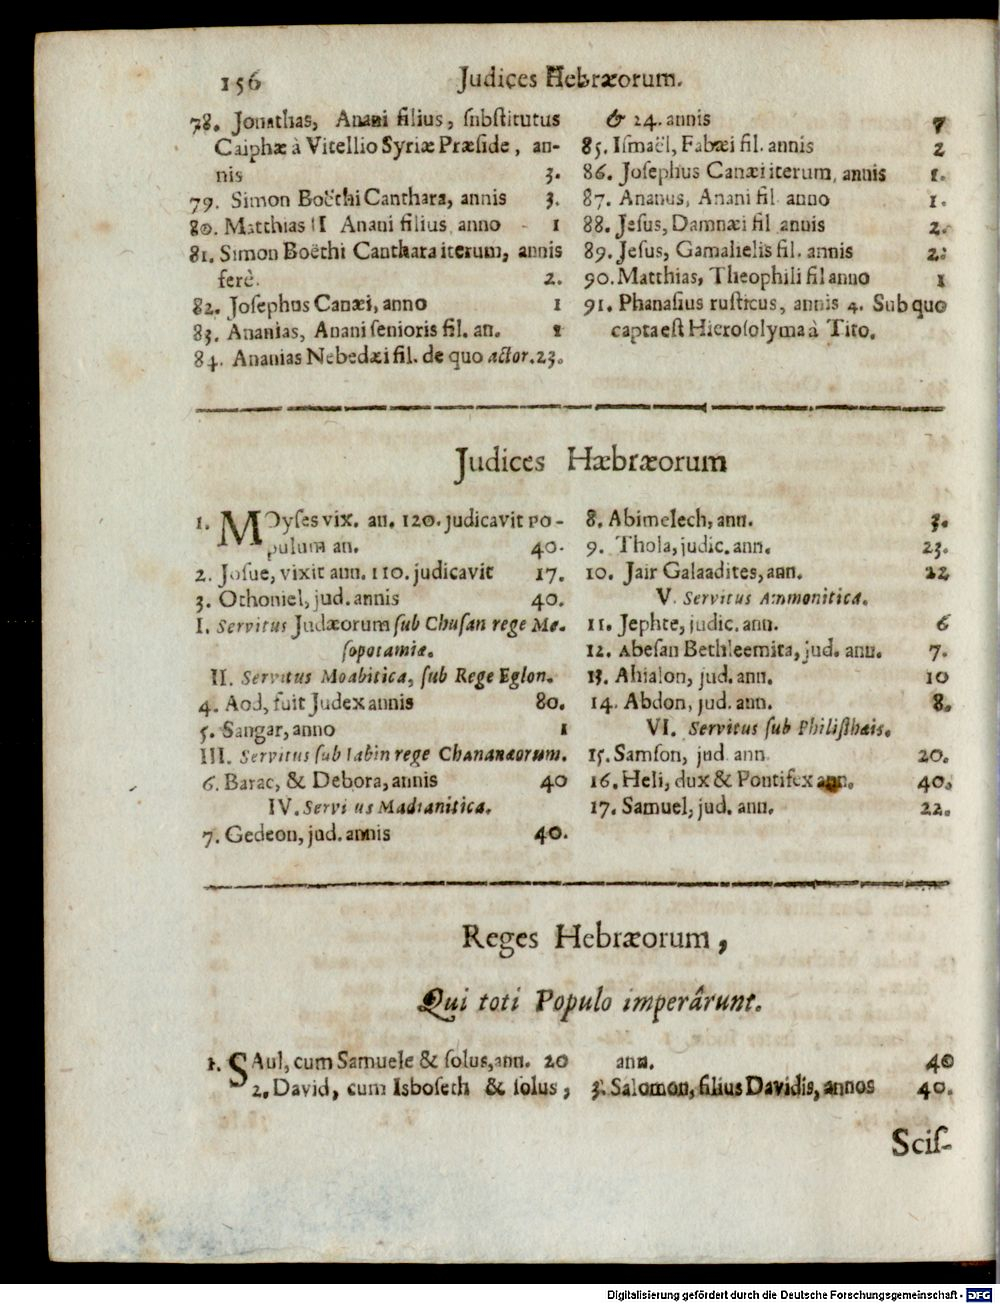 156 Judices Hebræorum.
78. Jonathas, Anani filius, ſubſtitutus
Caiphæ à Vitellio Syriæ Præſide, an-
nis 3.
79. Simon Boëthi Canthara, annis 3.
80. Matthias II Anani filius, anno 1
81. Simon Boëthi Canthara iterum, annis
ferè. 2.
82. Joſephus Canæi, anno 1
83. Ananias, Anani ſenioris fil. an. 1
84. Ananias Nebedæi fil. de quo actor. 23.
& 24. annis 7
85. Iſmaël, Fabæi fil. annis 2
86. Joſephus Canæi iterum, annis 1.
87. Ananus, Anani fil. anno 1.
88. Jeſus, Damnæi fil annis 2.
89. Jeſus, Gamalielis fil. annis 2.
90. Matthias, Theophili fil anno 1
91. Phanaſius ruſticus, annis 4. Sub quo
capta eſt Hieroſolyma à Tito.
Judices Hæbræorum
1. MOyſes vix. an. 120. judicavit po-
pulum an. 40.
2. Joſue, vixit ann. 110. judicavit 17.
3. Othoniel, jud. annis 40.
I. Servitus Judæorum ſub Chuſan rege Me-
ſopotamiæ.
II. Servitus Moabitica, ſub Rege Eglon.
4. Aod, fuit Judex annis 80.
5. Sangar, anno 1
III. Servitus ſub Iabin rege Chananæorum.
6. Barac, & Debora, annis 40
IV. Servi us Madianitica.
7. Gedeon, jud. annis 40.
8. Abimelech, ann. 3.
9. Thola, judic. ann. 23.
10. Jair Galaadites, ann. 22
V. Servitus Ammonitica.
11. Jephte, judic. ann. 6
12. Abeſan Bethleemita, jud. ann. 7.
13. Ahialon, jud. ann. 10
14. Abdon, jud. ann. 8.
VI. Servitus ſub Philiſthæis.
15. Samſon, jud ann 20.
16. Heli, dux & Pontifex ann. 40.
17. Samuel, jud. ann. 22.
Reges Hebræorum,
Qui toti Populo imperârunt.
1. SAul, cum Samuele & ſolus, ann. 20
2. David, cum Isboſeth & ſolus,
ann. 40
3. Salomon, filius Davidis, annos 40.
Sciſ-
Digitalisierung gefördert durch die Deutsche Forschungsgemeinschaft - DFG